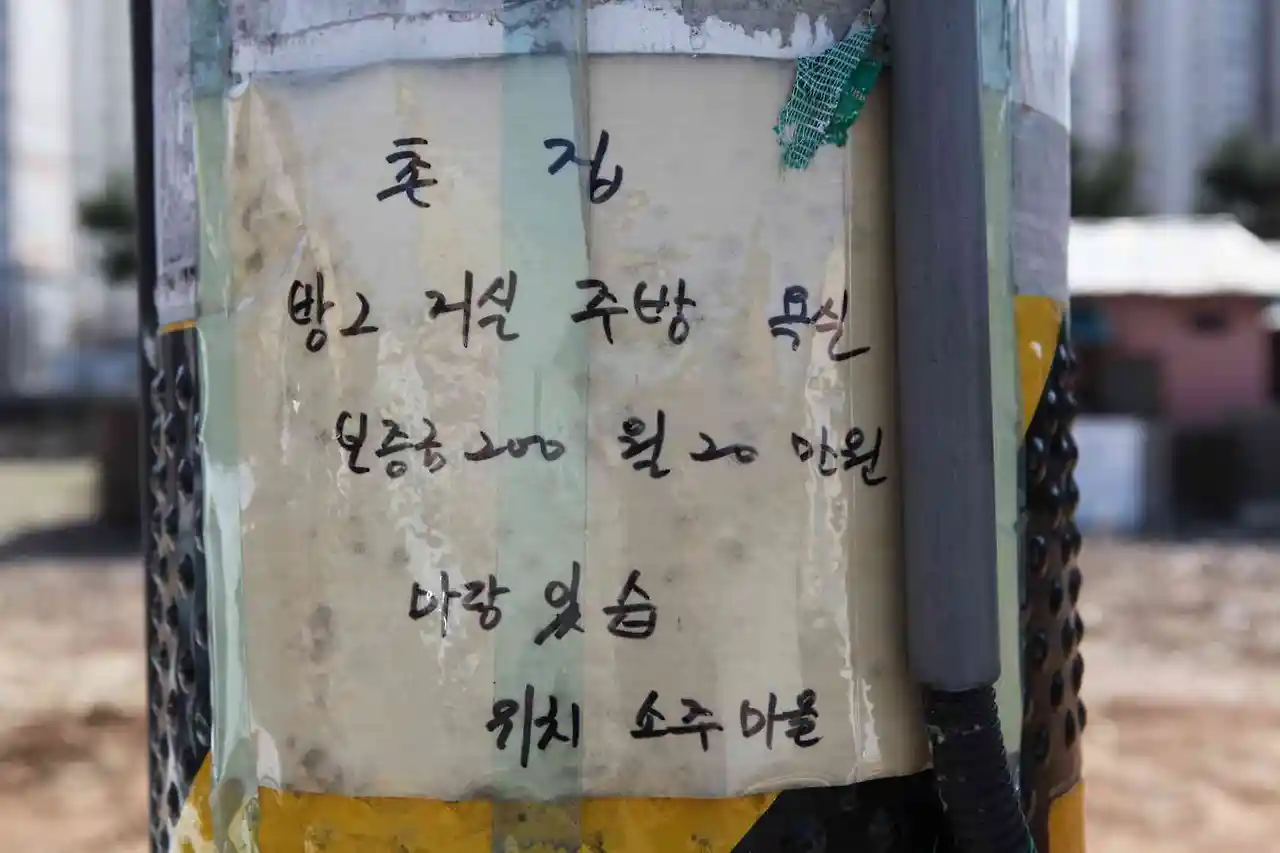 촌 집
방2 거실 주방 욕실
보증금 200 월 20 만원
마랑 있습
위치 소주마을